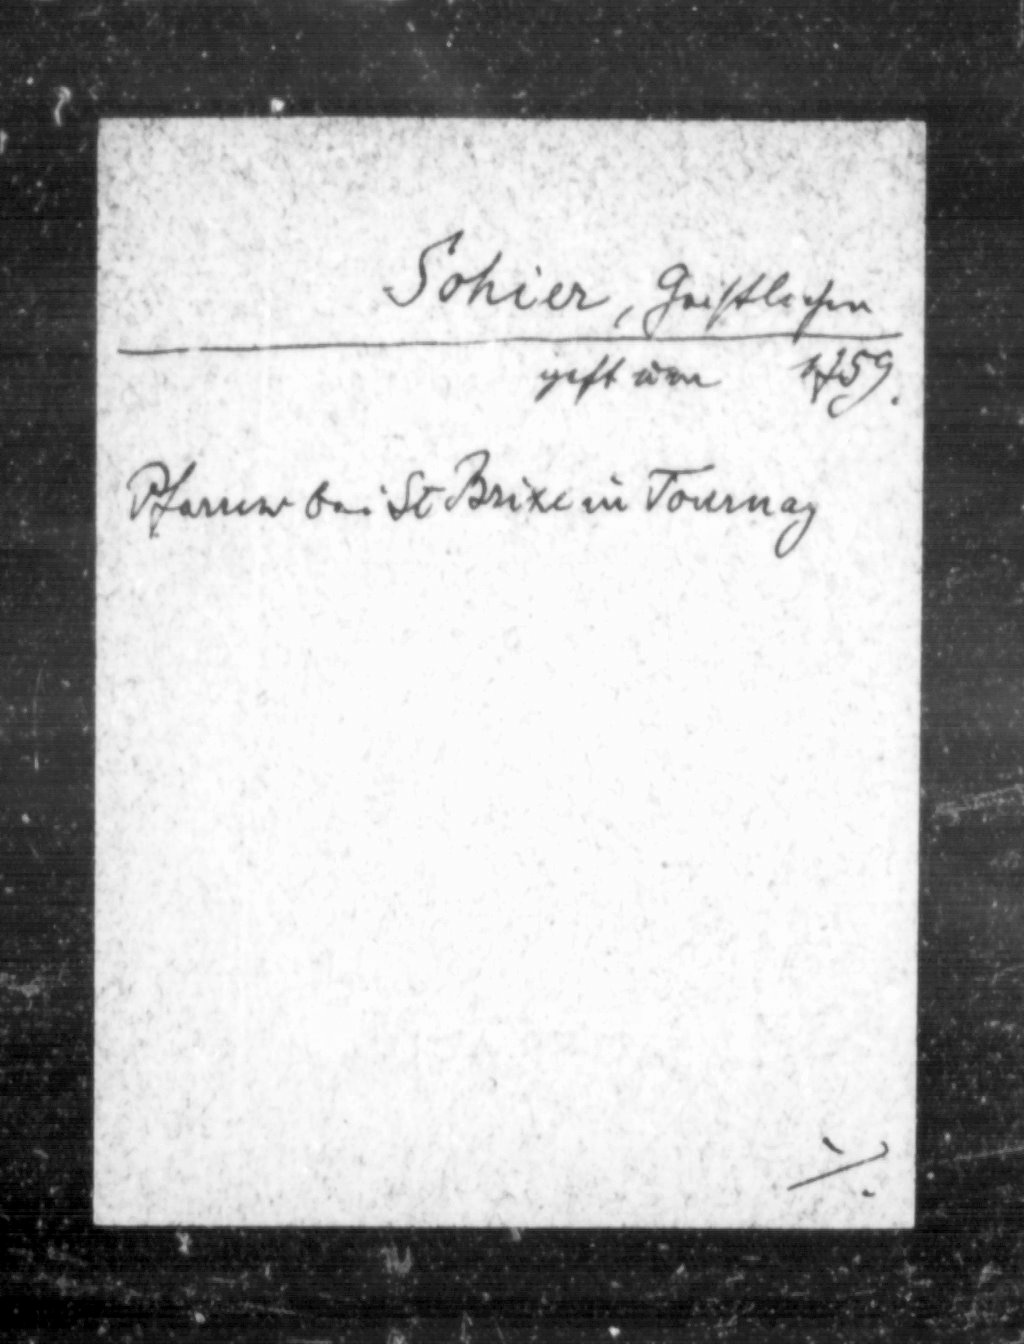 Sohier, Geistlicher
gest um 1759.
Pfarrer bei St Brixe in Tournay